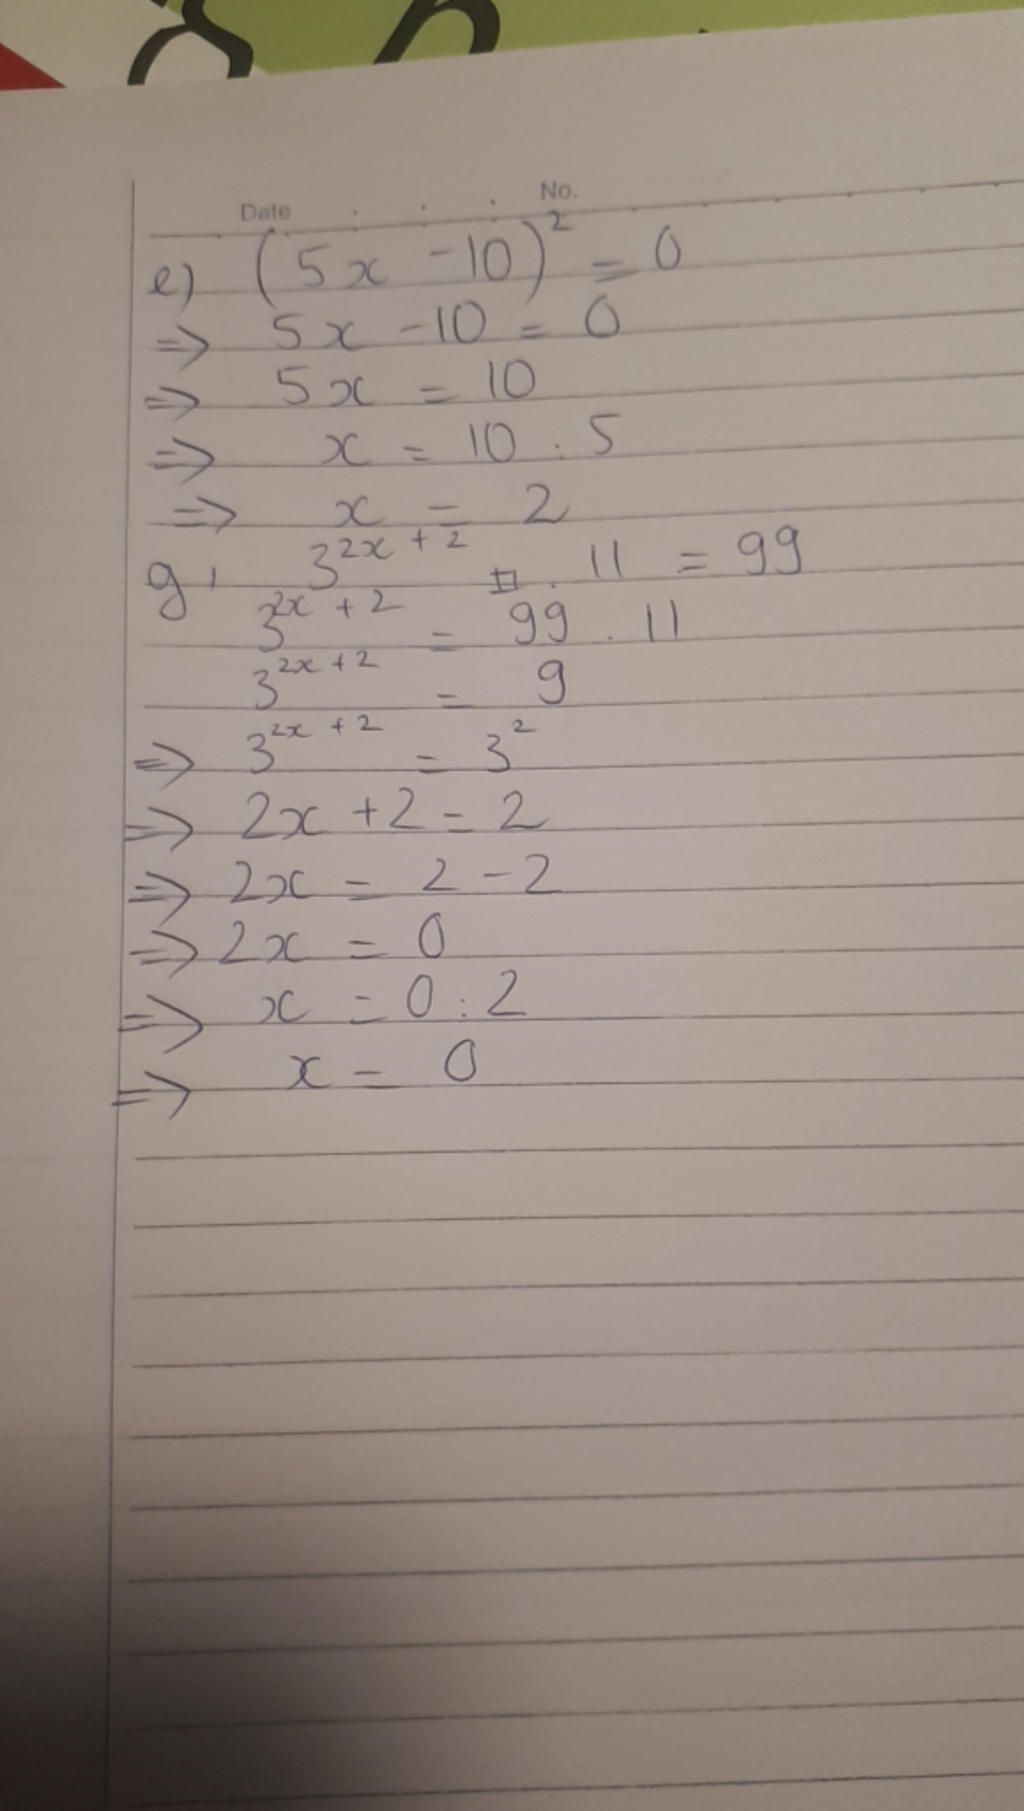 Date No.
e) (5x - 10)² = 0
⇒ 5x - 10 = 0
⇒ 5x = 10
⇒ x = 10 : 5
⇒ x = 2
g, 3^{2x + 2} . 11 = 99
3^{2x + 2} = 99 . 11
3^{2x + 2} = 9
⇒ 3^{2x + 2} = 3²
⇒ 2x + 2 = 2
⇒ 2x = 2 - 2
⇒ 2x = 0
⇒ x = 0 : 2
⇒ x = 0